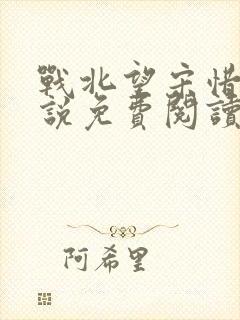 戰北望宋惜
說免費閱讀
阿希里